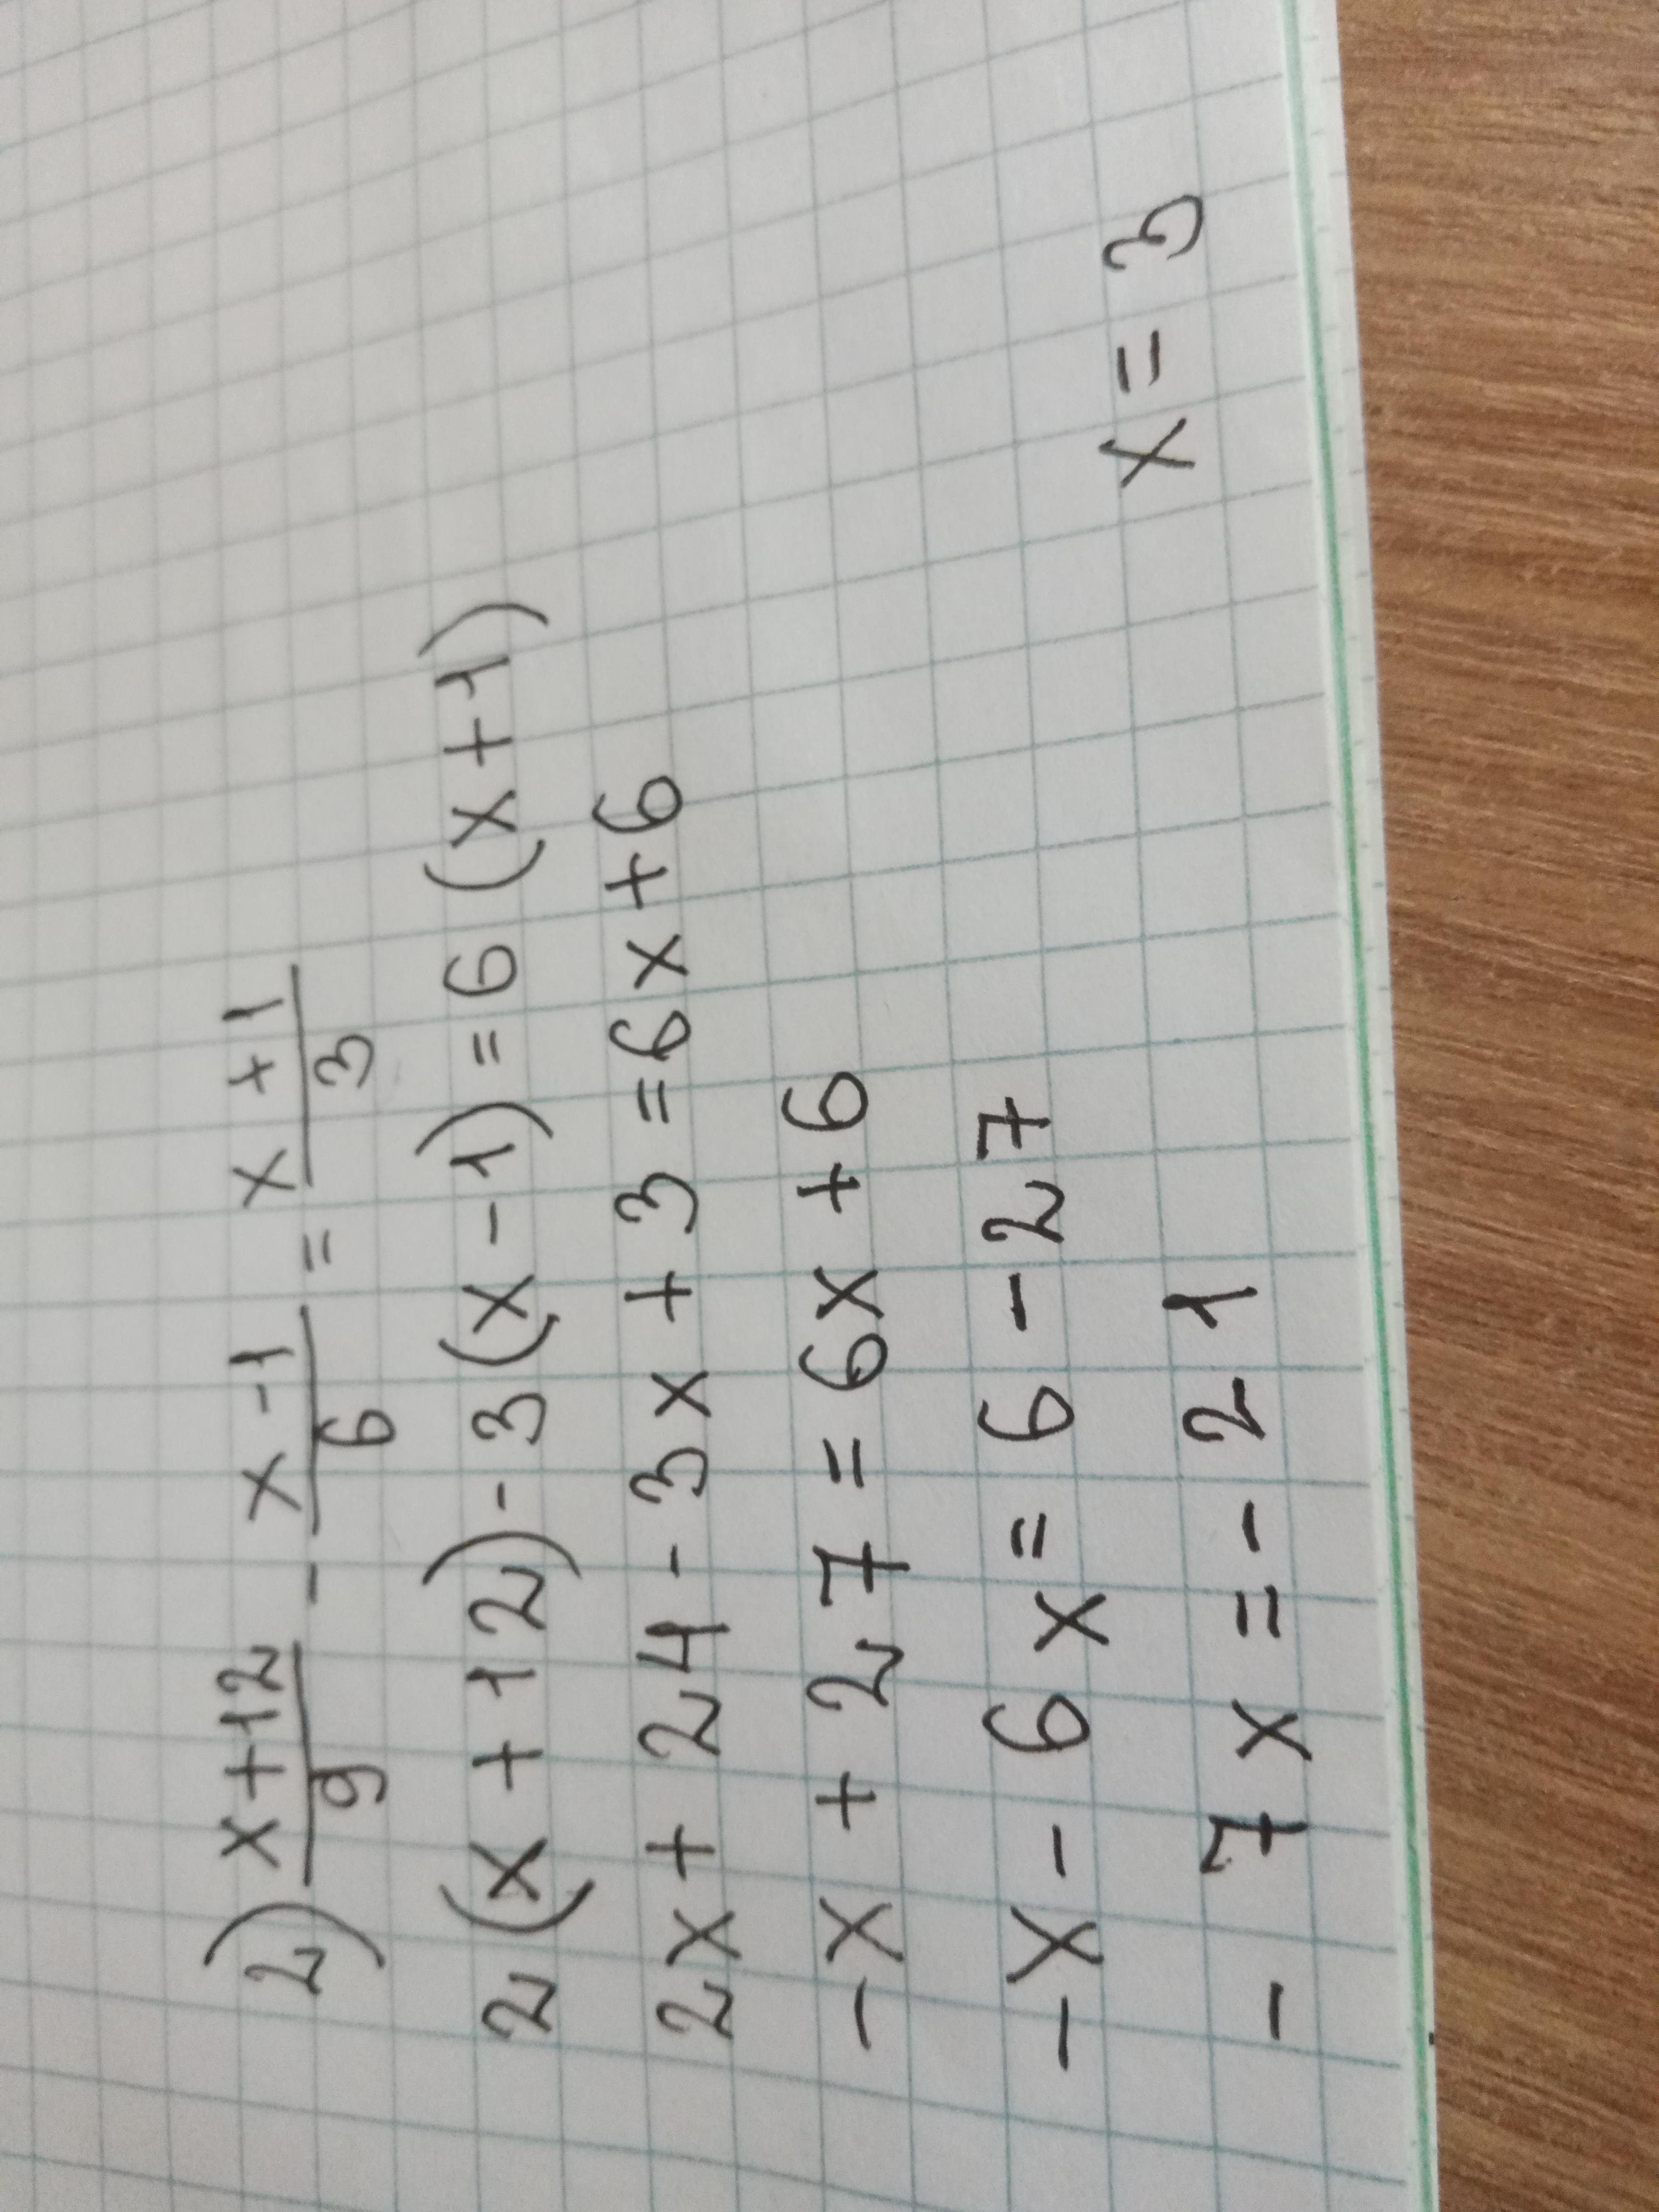 2) x+12/9 - x-1/6 = x+1/3
2(x+12)-3(x-1)=6(x+1)
2x+24-3x+3=6x+6
-x+27=6x+6
-x-6x=6-27
-7x=-21 x=3